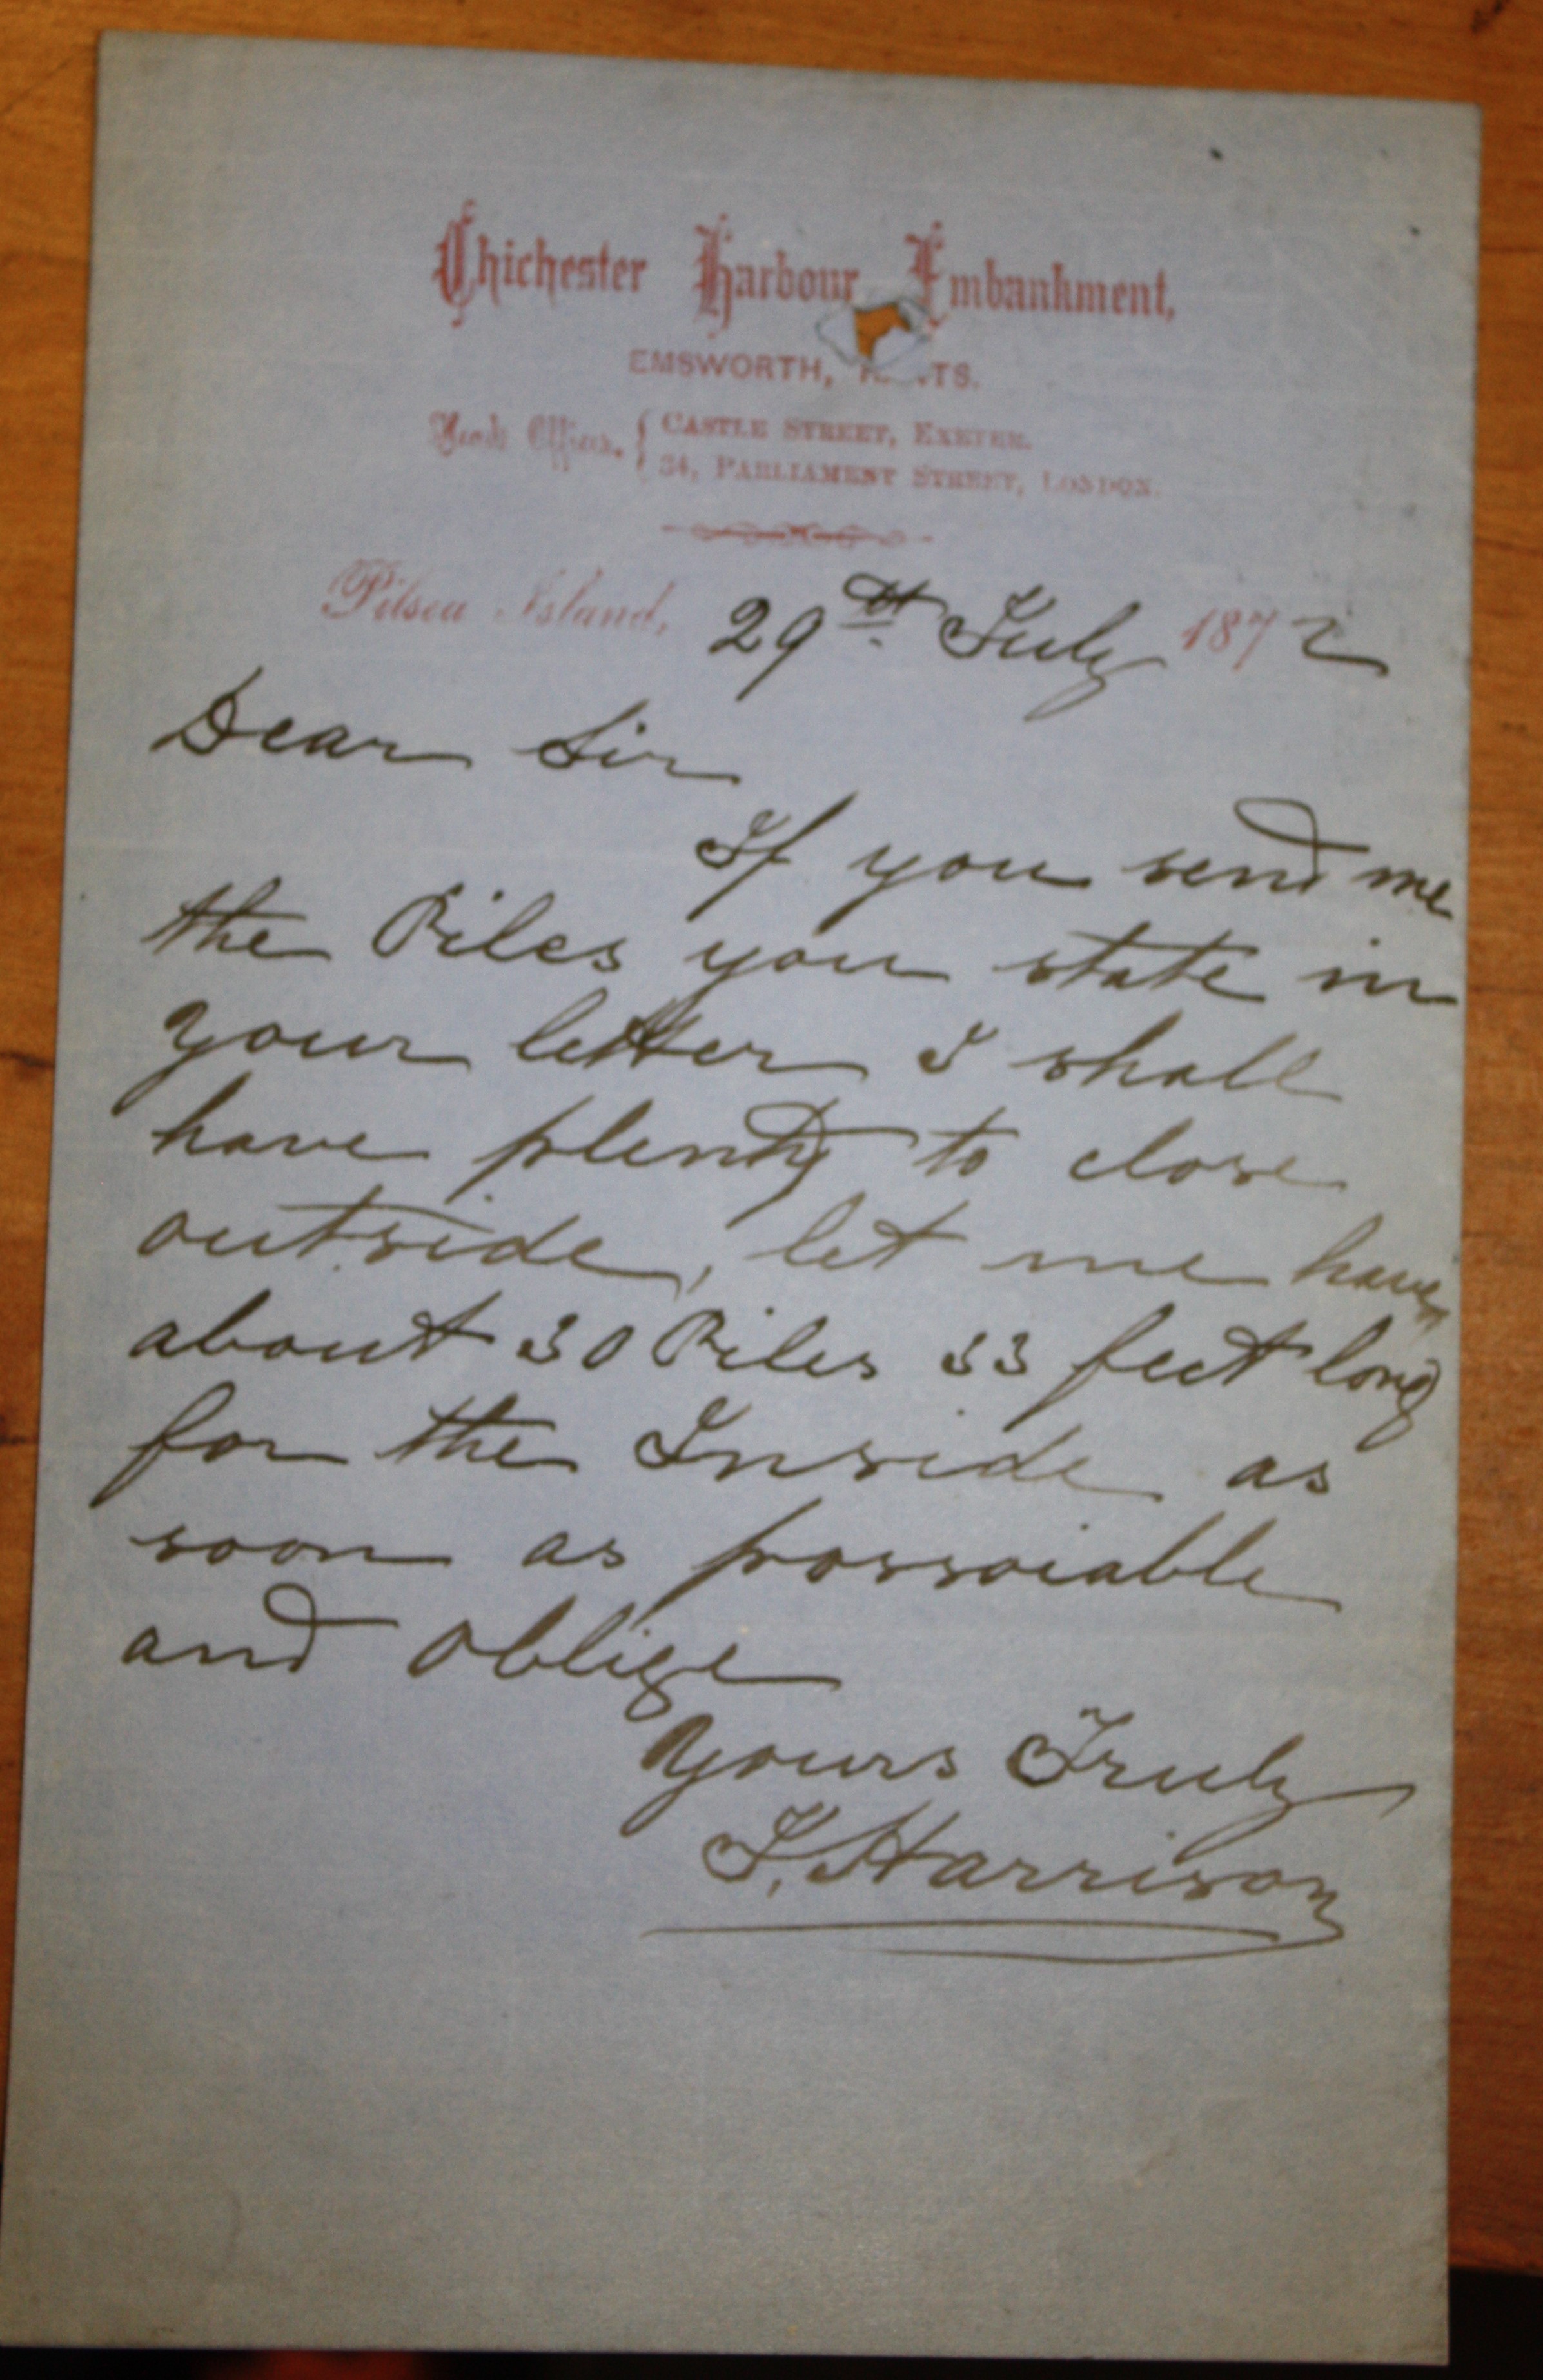 Chichester Harbour Embankment,
EMSWORTH, HANTS.
Head Offices. { CASTLE STREET, EXETER.
34, PARLIAMENT STREET, LONDON.
Pilsea Island, 29th July 1872
Dear Sir
If you send me
the Piles you state in
your letter I shall
have plenty to close
outside, let me have
about 30 Piles 33 feet long
for the Inside as
soon as possoiable
and oblige
Yours Truly
T. Harrison